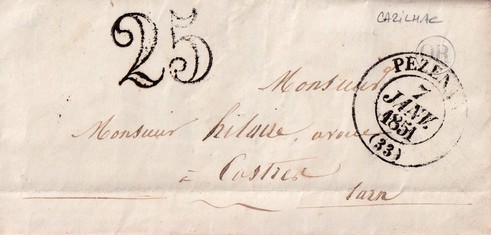 CAZILHAC
25
OR
PEZENAS
7
JANV.
1851
(33)
Monsieur
Monsieur hilaire, avoué
à Castres
tarn